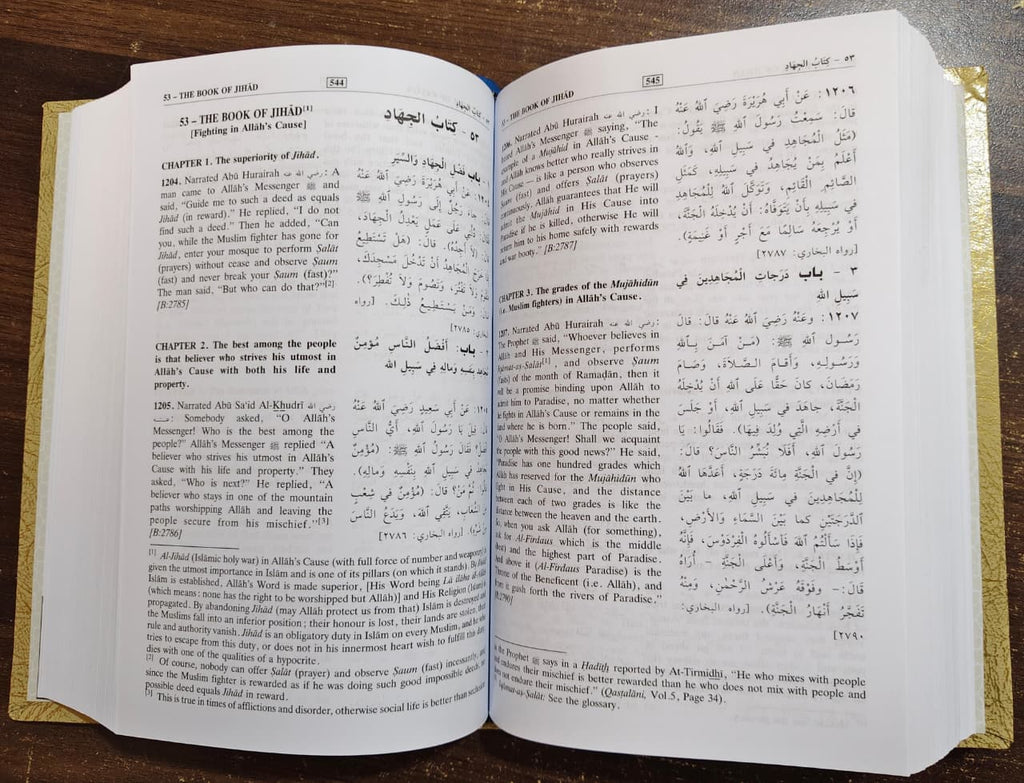 53 – THE BOOK OF JIHĀD
544
53 – THE BOOK OF JIHĀD[1]
[Fighting in Allāh's Cause]
CHAPTER 1. The superiority of Jihād.
1204. Narrated Abū Hurairah رضي الله عنه : A
man came to Allāh's Messenger ﷺ and
said, "Guide me to such a deed as equals
Jihād (in reward)." He replied, "I do not
find such a deed." Then he added, "Can
you, while the Muslim fighter has gone for
Jihād, enter your mosque to perform Ṣalāt
(prayers) without cease and observe Ṣaum
(fast) and never break your Ṣaum (fast)?"
The man said, "But who can do that?"[2]
[B:2785]
CHAPTER 2. The best among the people
is that believer who strives his utmost in
Allāh's Cause with both his life and
property.
1205. Narrated Abū Sa'īd Al-Khudrī رضي الله
عنه : Somebody asked, "O Allāh's
Messenger! Who is the best among the
people?" Allāh's Messenger ﷺ replied "A
believer who strives his utmost in Allāh's
Cause with his life and property." They
asked, "Who is next?" He replied, "A
believer who stays in one of the mountain
paths worshipping Allāh and leaving the
people secure from his mischief."[3]
[B:2786]
٥٣ - كتاب الجهاد
باب فضل الجهاد والسير
عَنْ أَبِي هُرَيْرَةَ رَضِيَ اللهُ عَنْهُ
جَاءَ رَجُلٌ إِلَى رَسُولِ اللهِ ﷺ
دُلَّنِي عَلَى عَمَلٍ يَعْدِلُ الْجِهَادَ،
(لَا أَجِدُهُ). قَالَ: (هَلْ تَسْتَطِيعُ
خَرَجَ الْمُجَاهِدُ أَنْ تَدْخُلَ مَسْجِدَكَ،
وَلَا تَفْتُرَ، وَتَصُومَ وَلَا تُفْطِرَ؟).
وَمَنْ يَسْتَطِيعُ ذٰلِكَ. [رواه
٢٧٨٥]
باب: أَفْضَلُ النَّاسِ مُؤْمِنٌ
بِنَفْسِهِ وَمَالِهِ فِي سَبِيلِ اللهِ
عَنْ أَبِي سَعِيدٍ رَضِيَ اللهُ عَنْهُ
قِيلَ يَا رَسُولَ اللهِ، أَيُّ النَّاسِ
فَقَالَ رَسُولُ اللهِ ﷺ: (مُؤْمِنٌ
فِي سَبِيلِ اللهِ بِنَفْسِهِ وَمَالِهِ).
ثُمَّ مَنْ؟ قَالَ: (مُؤْمِنٌ فِي شِعْبٍ
الشِّعَابِ، يَتَّقِي اللهَ، وَيَدَعُ النَّاسَ
[رواه البخاري: ٢٧٨٦]
[1] Al-Jihād (Islāmic holy war) in Allāh's Cause (with full force of number and weaponry)
given the utmost importance in Islām and is one of its pillars (on which it stands). By
Islām is established, Allāh's Word is made superior, [His Word being Lā ilāha
(which means: none has the right to be worshipped but Allāh)] and His Religion (Islām)
propagated. By abandoning Jihād (may Allāh protect us from that) Islām is destroyed and
the Muslims fall into an inferior position; their honour is lost, their lands are stolen, their
rule and authority vanish. Jihād is an obligatory duty in Islām on every Muslim, and he who
tries to escape from this duty, or does not in his innermost heart wish to fulfill this duty
dies with one of the qualities of a hypocrite.
[2] Of course, nobody can offer Ṣalāt (prayer) and observe Ṣaum (fast) incessantly, and
since the Muslim fighter is rewarded as if he was doing such good impossible deeds, no
possible deed equals Jihād in reward.
[3] This is true in times of afflictions and disorder, otherwise social life is better than
– THE BOOK OF JIHĀD
545
٥٣ - كتاب الجهاد
1206. Narrated Abū Hurairah رضي الله عنه : I
heard Allāh's Messenger ﷺ saying, "The
example of a Mujāhid in Allāh's Cause -
and Allāh knows better who really strives in
His Cause — is like a person who observes
Ṣaum (fast) and offers Ṣalāt (prayers)
continuously. Allāh guarantees that He will
admit the Mujāhid in His Cause into
Paradise if he is killed, otherwise He will
return him to his home safely with rewards
and war booty." [B:2787]
CHAPTER 3. The grades of the Mujāhidūn
(i.e. Muslim fighters) in Allāh's Cause.
1207. Narrated Abū Hurairah رضي الله عنه :
The Prophet ﷺ said, "Whoever believes in
Allāh and His Messenger, performs
Iqāmat-aṣ-Ṣalāt[1], and observe Ṣaum
(fasts) of the month of Ramaḍān, then it
will be a promise binding upon Allāh to
admit him to Paradise, no matter whether
he fights in Allāh's Cause or remains in the
land where he is born." The people said,
"O Allāh's Messenger! Shall we acquaint
the people with this good news?" He said,
"Paradise has one hundred grades which
Allāh has reserved for the Mujāhidūn who
fight in His Cause, and the distance
between each of two grades is like the
distance between the heaven and the earth.
So, when you ask Allāh (for something),
ask for Al-Firdaus which is the middle
(best) and the highest part of Paradise.
And above it (Al-Firdaus Paradise) is the
Throne of the Beneficent (i.e. Allāh), and
from it gush forth the rivers of Paradise."
[B:2790]
١٢٠٦: عَنْ أَبِي هُرَيْرَةَ رَضِيَ اللهُ عَنْهُ
قَالَ: سَمِعْتُ رَسُولَ اللهِ ﷺ يَقُولُ:
(مَثَلُ الْمُجَاهِدِ فِي سَبِيلِ اللهِ، وَاللهُ
أَعْلَمُ بِمَنْ يُجَاهِدُ فِي سَبِيلِهِ، كَمَثَلِ
الصَّائِمِ الْقَائِمِ، وَتَوَكَّلَ اللهُ لِلْمُجَاهِدِ
فِي سَبِيلِهِ بِأَنْ يَتَوَفَّاهُ: أَنْ يُدْخِلَهُ الْجَنَّةَ،
أَوْ يُرْجِعَهُ سَالِمًا مَعَ أَجْرٍ أَوْ غَنِيمَةٍ).
[رواه البخاري: ٢٧٨٧]
٣ - باب دَرَجَاتِ الْمُجَاهِدِينَ فِي
سَبِيلِ اللهِ
١٢٠٧: وعَنْهُ رَضِيَ اللهُ عَنْهُ قَالَ: قَالَ
رَسُولُ اللهِ ﷺ: (مَنْ آمَنَ بِاللهِ
وَرَسُولِهِ، وَأَقَامَ الصَّلَاةَ، وَصَامَ
رَمَضَانَ، كَانَ حَقًّا عَلَى اللهِ أَنْ يُدْخِلَهُ
الْجَنَّةَ، جَاهَدَ فِي سَبِيلِ اللهِ، أَوْ جَلَسَ
فِي أَرْضِهِ الَّتِي وُلِدَ فِيهَا). فَقَالُوا: يَا
رَسُولَ اللهِ، أَفَلَا نُبَشِّرُ النَّاسَ؟ قَالَ:
(إِنَّ فِي الْجَنَّةِ مِائَةَ دَرَجَةٍ، أَعَدَّهَا اللهُ
لِلْمُجَاهِدِينَ فِي سَبِيلِ اللهِ، ما بَيْنَ
الدَّرَجَتَيْنِ كما بَيْنَ السَّمَاءِ وَالأَرْضِ،
فَإِذَا سَأَلْتُمُ اللهَ فَاسْأَلُوهُ الْفِرْدَوْسَ، فَإِنَّهُ
أَوْسَطُ الْجَنَّةِ، وَأَعْلَى الْجَنَّةِ - أُرَاهُ
قَالَ: - وَفَوْقَهُ عَرْشُ الرَّحْمٰنِ، وَمِنْهُ
تَفَجَّرُ أَنْهَارُ الْجَنَّةِ). [رواه البخاري:
٢٧٩٠]
the Prophet ﷺ says in a Ḥadīth reported by At-Tirmidhī, "He who mixes with people
and endures their mischief is better rewarded than he who does not mix with people and
does not endure their mischief." (Qasṭalānī, Vol.5, Page 34).
Iqāmat-aṣ-Ṣalāt: See the glossary.